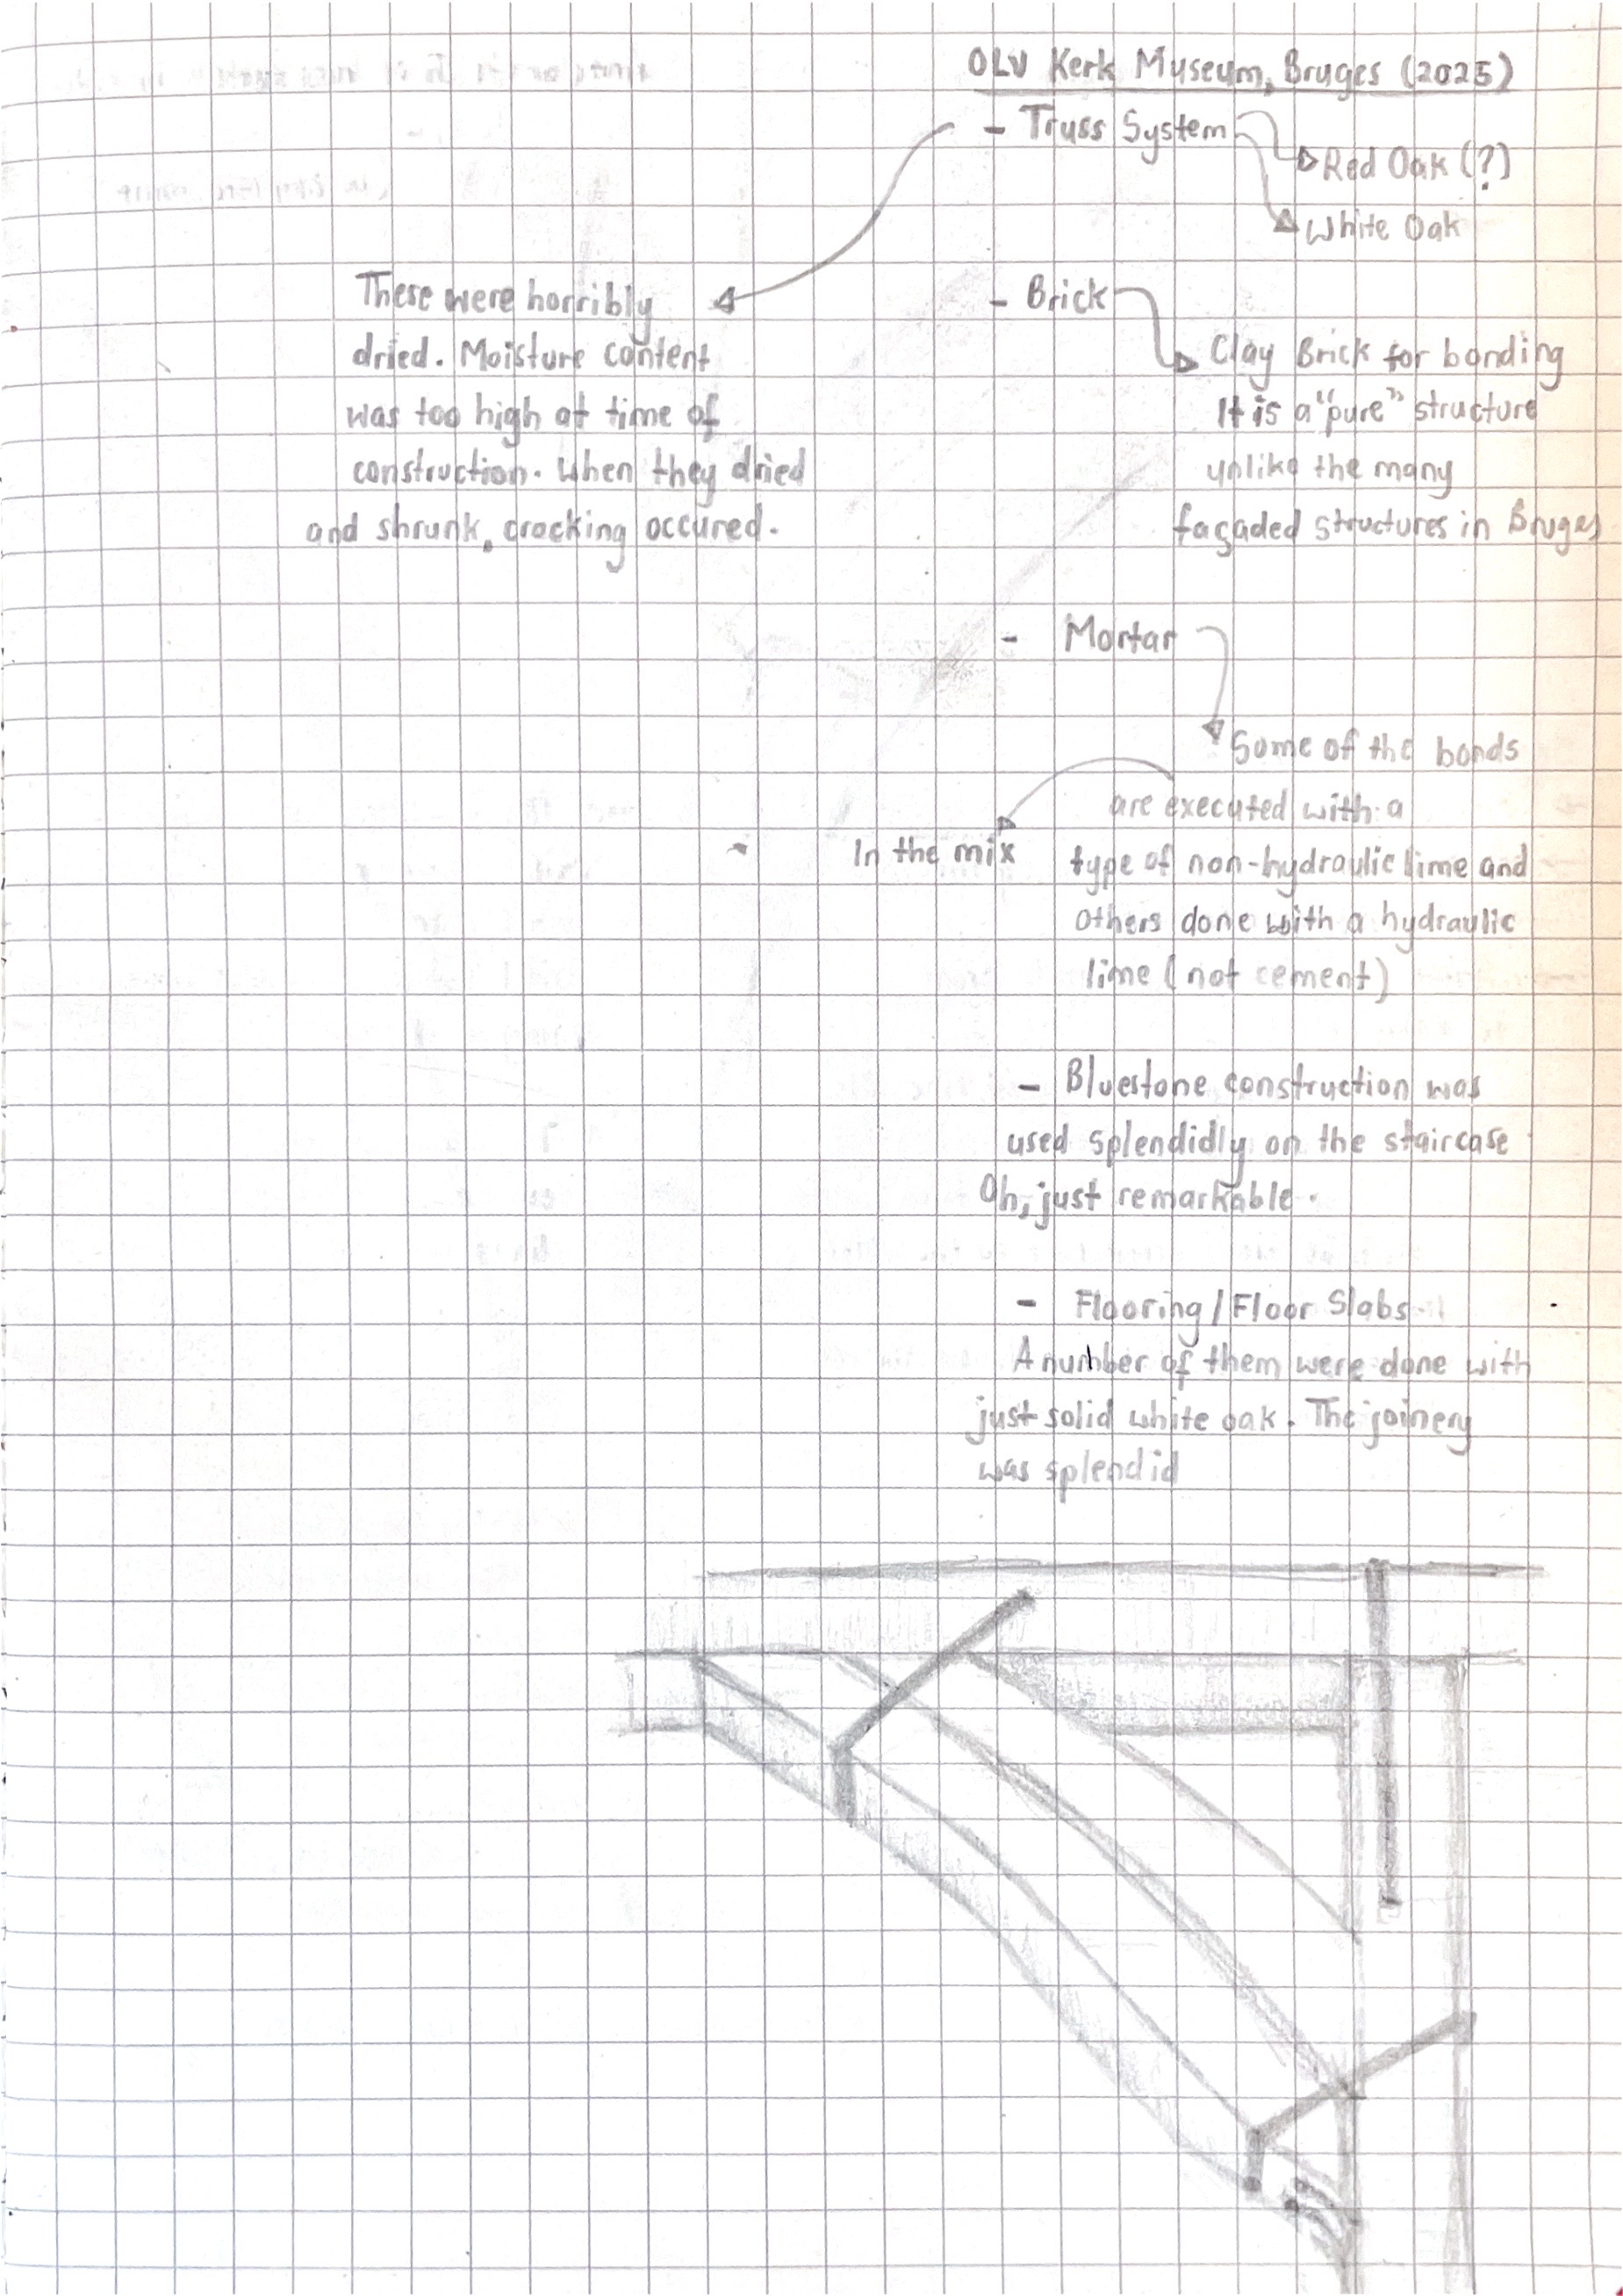 OLV Kerk Museum, Bruges (2025)
- Truss System
Red Oak (?)
White Oak
These were horribly
dried. Moisture content
was too high at time of
construction. When they dried
and shrunk, cracking occured.
- Brick
Clay Brick for bonding
It is a "pure" structure
unlike the many
façaded structures in Bruges
- Mortar
Some of the bonds
are executed with a
In the mix
type of non-hydraulic lime and
others done with a hydraulic
lime (not cement)
- Bluestone construction was
used splendidly on the staircase
Oh, just remarkable.
- Flooring/Floor Slabs
A number of them were done with
just solid white oak. The joinery
was splendid